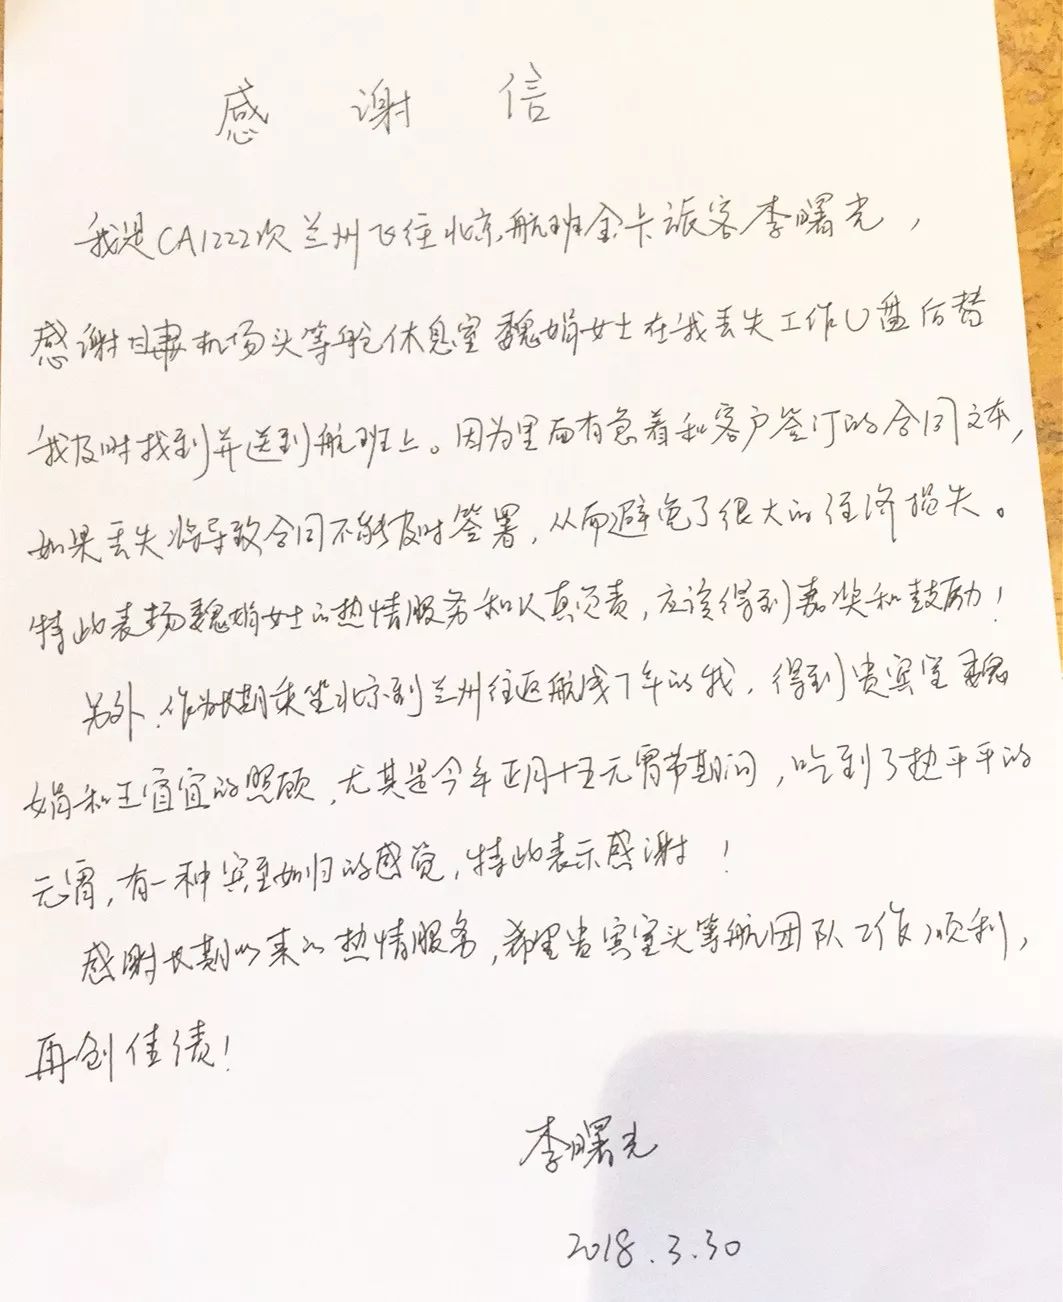 感谢信
我是CA1222次兰州飞往北京航班金卡旅客李曙光，
感谢甘肃机场头等舱休息室魏娟女士在我丢失工作U盘后替
我及时找到并送到航班上。因为里面有急着和客户签订的合同文本，
如果丢失将导致合同不能及时签署，从而避免了很大的经济损失。
特此表扬魏娟女士的热情服务和认真负责，应该得到嘉奖和鼓励！
另外，作为长期乘坐北京到兰州往返航线7年的我，得到贵宾室魏
娟和王宜宜的照顾，尤其是今年正月十五元宵节期间，吃到了热乎乎的
元宵，有一种宾至如归的感觉，特此表示感谢！
感谢长期以来的热情服务，希望贵宾室头等航团队工作顺利，
再创佳绩！
李曙光
2018.3.30